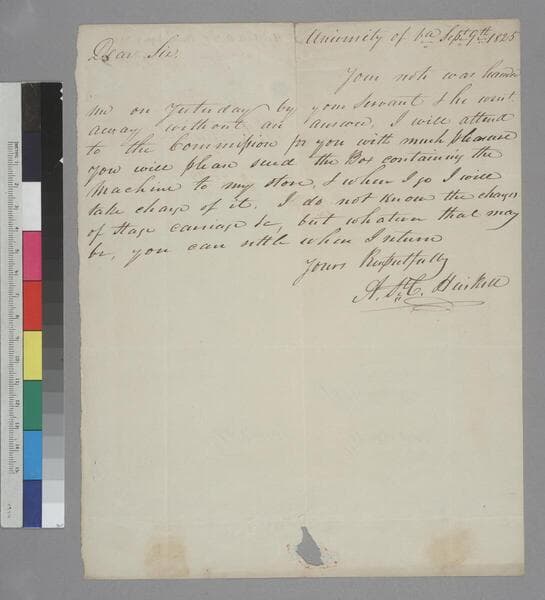 University of Va Sept 9th 1825
Dear Sir,
Your note was handed
me on yesterday by your servant & he went
away without an answer. I will attend
to the Commission for you with much pleasure
you will please send the Box containing the
Machine to my store, & when I go I will
take charge of it. I do not know the charges
of stage carriage &c, but whatever that may
be, you can settle when I return
Yours Respectfully
A. St. C. Heiskell